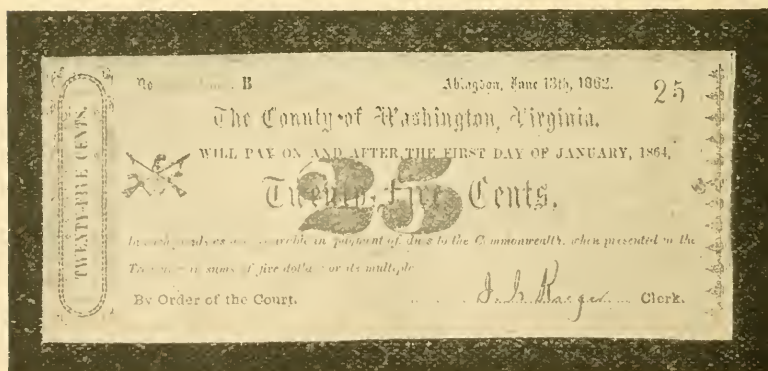 TWENTY-FIVE CENTS.
No B Abingdon, June 13th, 1862. 25
The County of Washington, Virginia,
WILL PAY ON AND AFTER THE FIRST DAY OF JANUARY, 1864,
25
Twenty-Five Cents,
in payment of dues to the Commonwealth, when presented to the
in sums of five dollars or its multiple
By Order of the Court. Clerk.